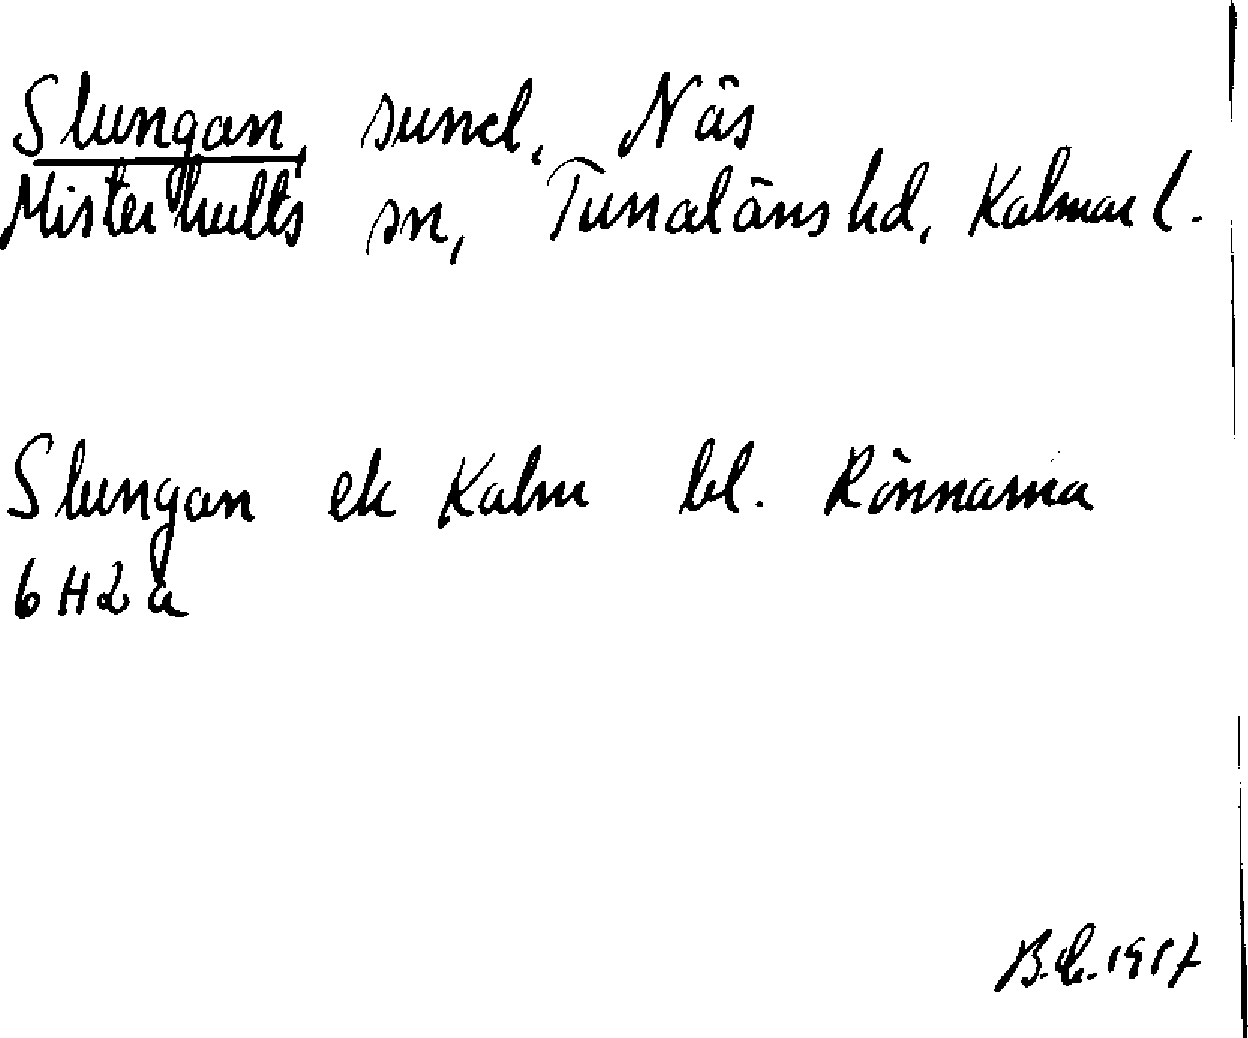 Slungan, sund, Näs
Misterhults sn, Tunaläns hd, Kalmar l.
Slungan ek Kalm bl. Rönnarna
6H2a
1957